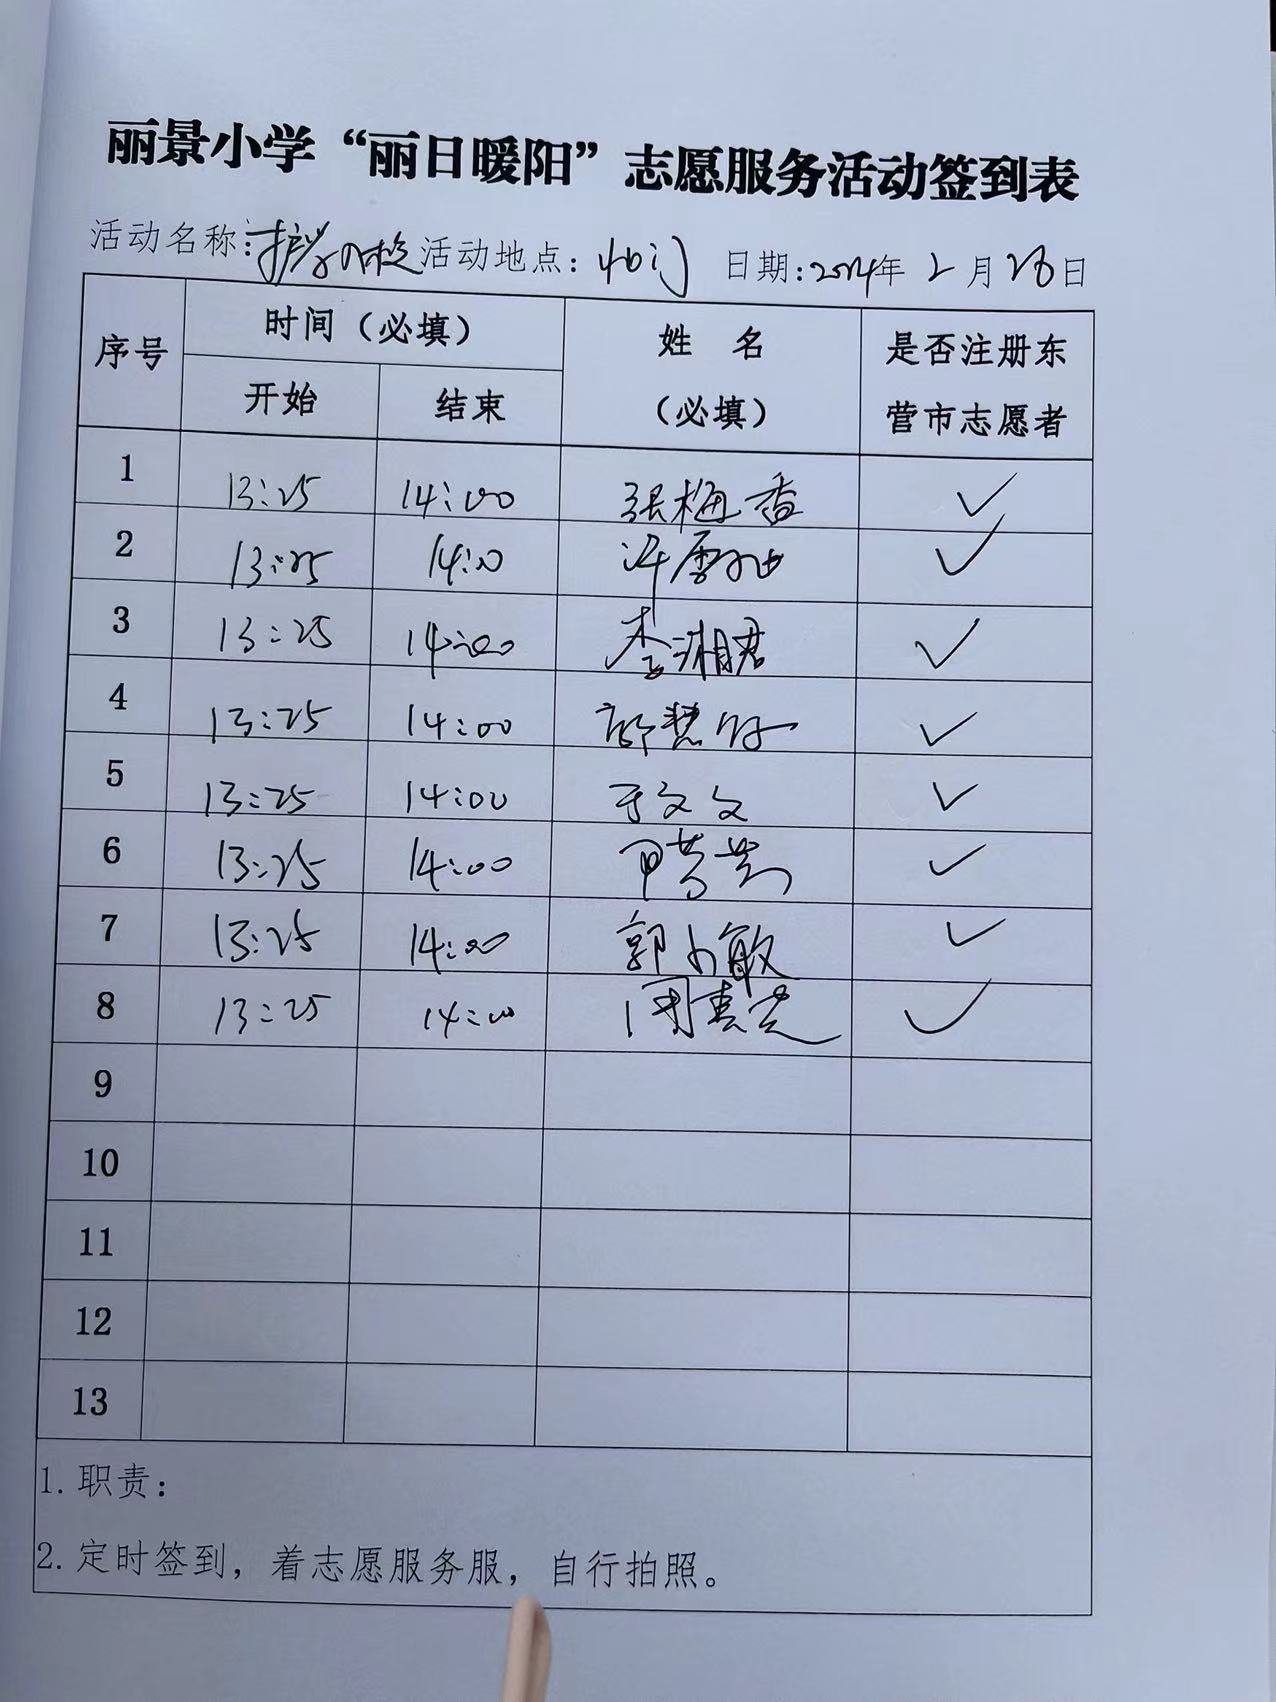 丽景小学“丽日暖阳”志愿服务活动签到表
活动名称:护学入校 活动地点: 北门 日期:2024年2月28日
序号 时间（必填） 姓 名（必填） 是否注册东营市志愿者
开始 结束
1 13:25 14:00 张梅香 ✓
2 13:25 14:00 ✓
3 13:25 14:00 李湘君 ✓
4 13:25 14:00 ✓
5 13:25 14:00 于文文 ✓
6 13:25 14:00 ✓
7 13:25 14:00 郭小敏 ✓
8 13:25 14:00 ✓
9
10
11
12
13
1. 职责：
2. 定时签到，着志愿服务服，自行拍照。